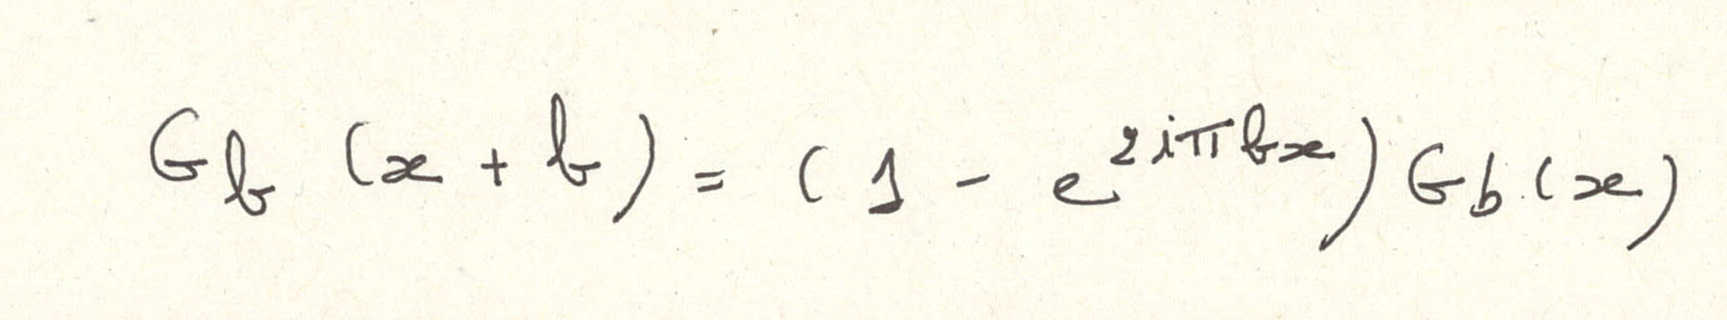 G_b (x + b) = (1 - e^{2iπbx}) G_b(x)